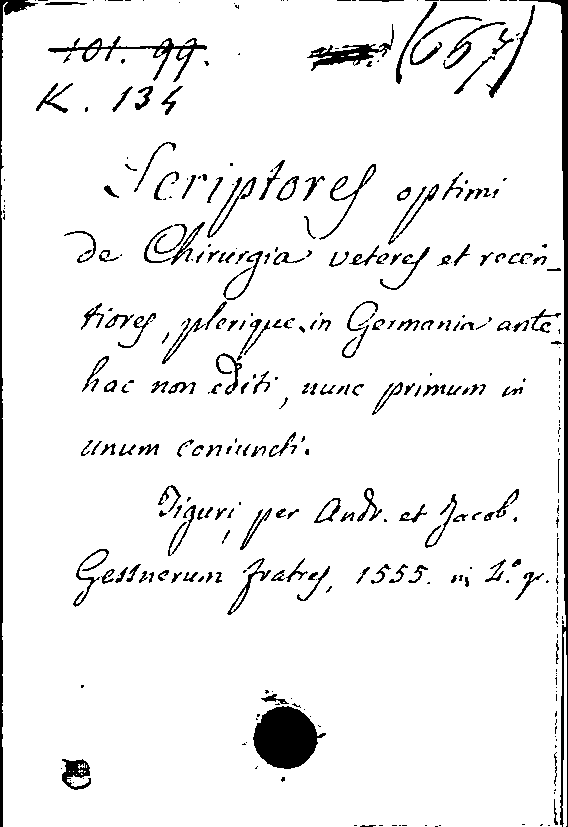 101. 99. (657)
K. 134
Scriptores optimi
de Chirurgia veteres et recen-
tiores, plerique in Germania ante-
hac non editi, nunc primum in
unum coniuncti.
Tiguri, per Andr. et Jacob.
Gessnerum fratres, 1555. in 2.° gr.